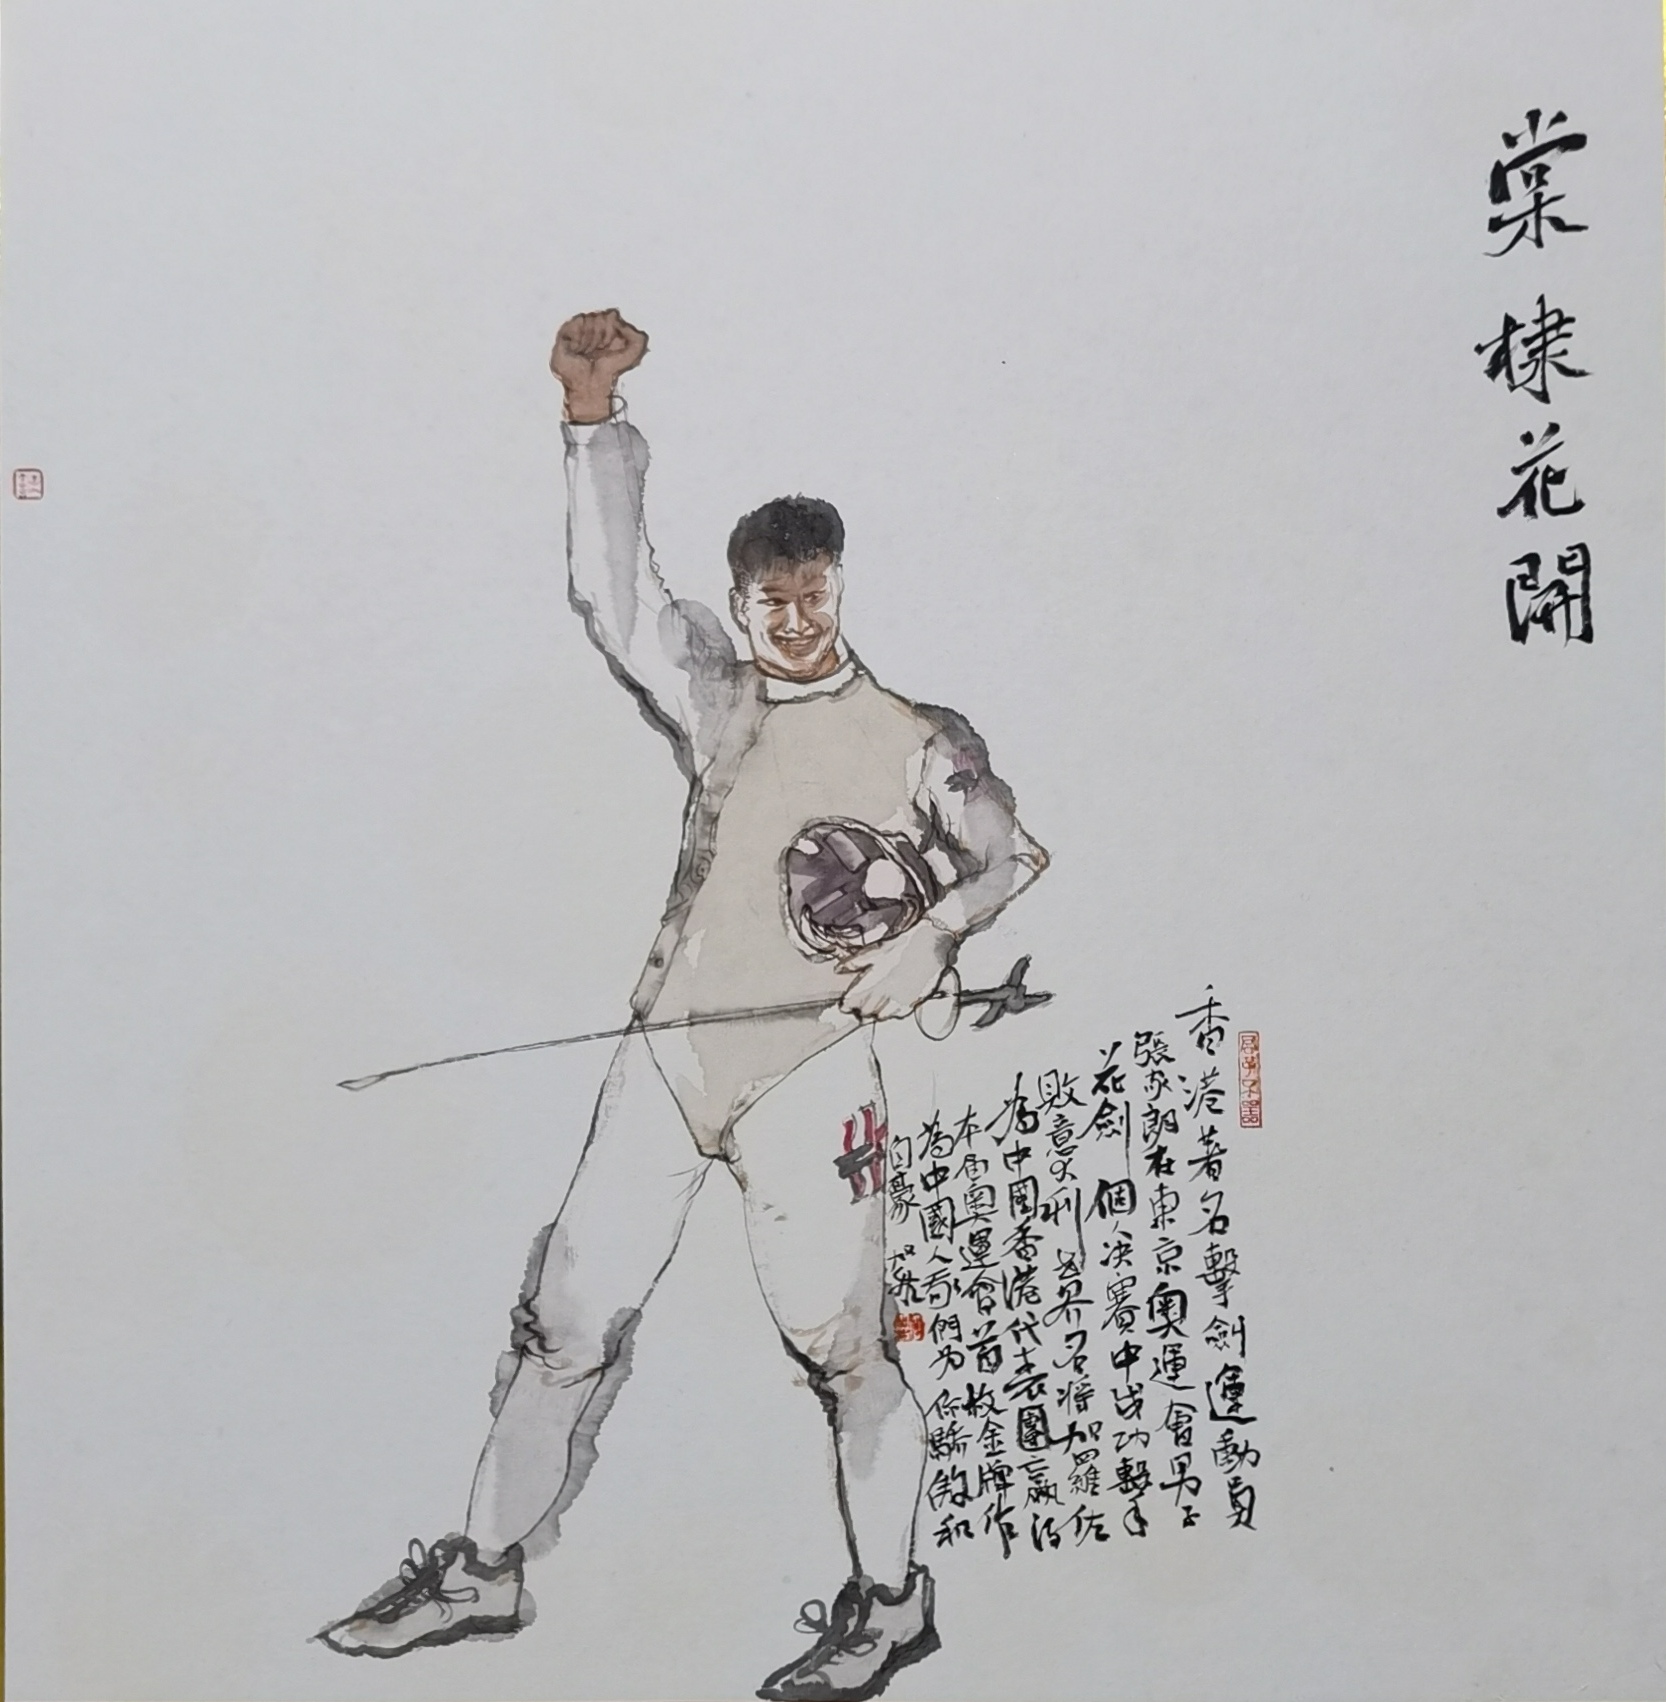 棠棣花開
君子不器
香港著名擊劍運動員
張家朗在東京奧運會男子
花劍個人决賽中成功擊
敗意大利世界名將加羅佐
為中國香港代表團贏得
本屆奧運會首枚金牌作
為中國人我們为你驕傲和
自豪